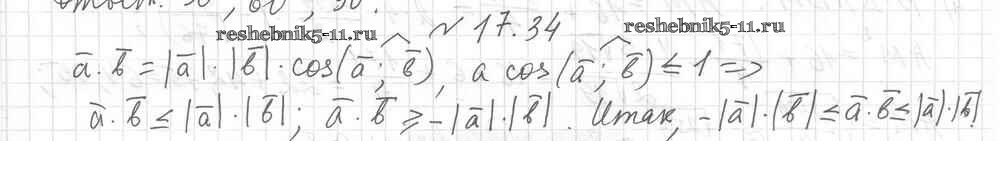 № 17.34
reshebnik5-11.ru reshebnik5-11.ru
a̅ · b̅ = |a̅| · |b̅| · cos(a̅; b̅), а cos(a̅; b̅) ≤ 1 =>
a̅ · b̅ ≤ |a̅| · |b̅|; a̅ · b̅ ≥ -|a̅| · |b̅|. Итак, -|a̅| · |b̅| ≤ a̅ · b̅ ≤ |a̅| · |b̅|.